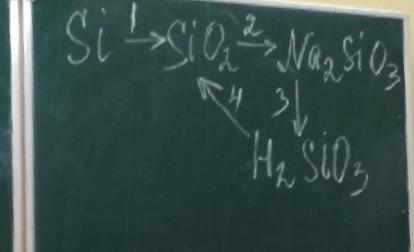 Si 1→ SiO₂ 2→ Na₂SiO₃
4 3
H₂SiO₃